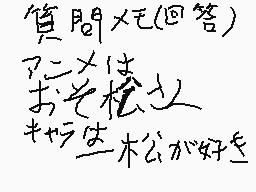 質問メモ(回答)
アニメは
おそ松さん
キャラは
一松が好き